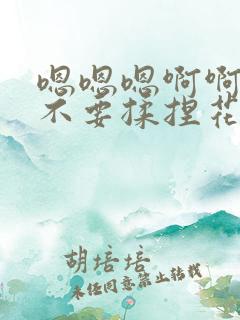 嗯嗯嗯啊啊
不要揉捏花
胡培培
未经同意禁止转载